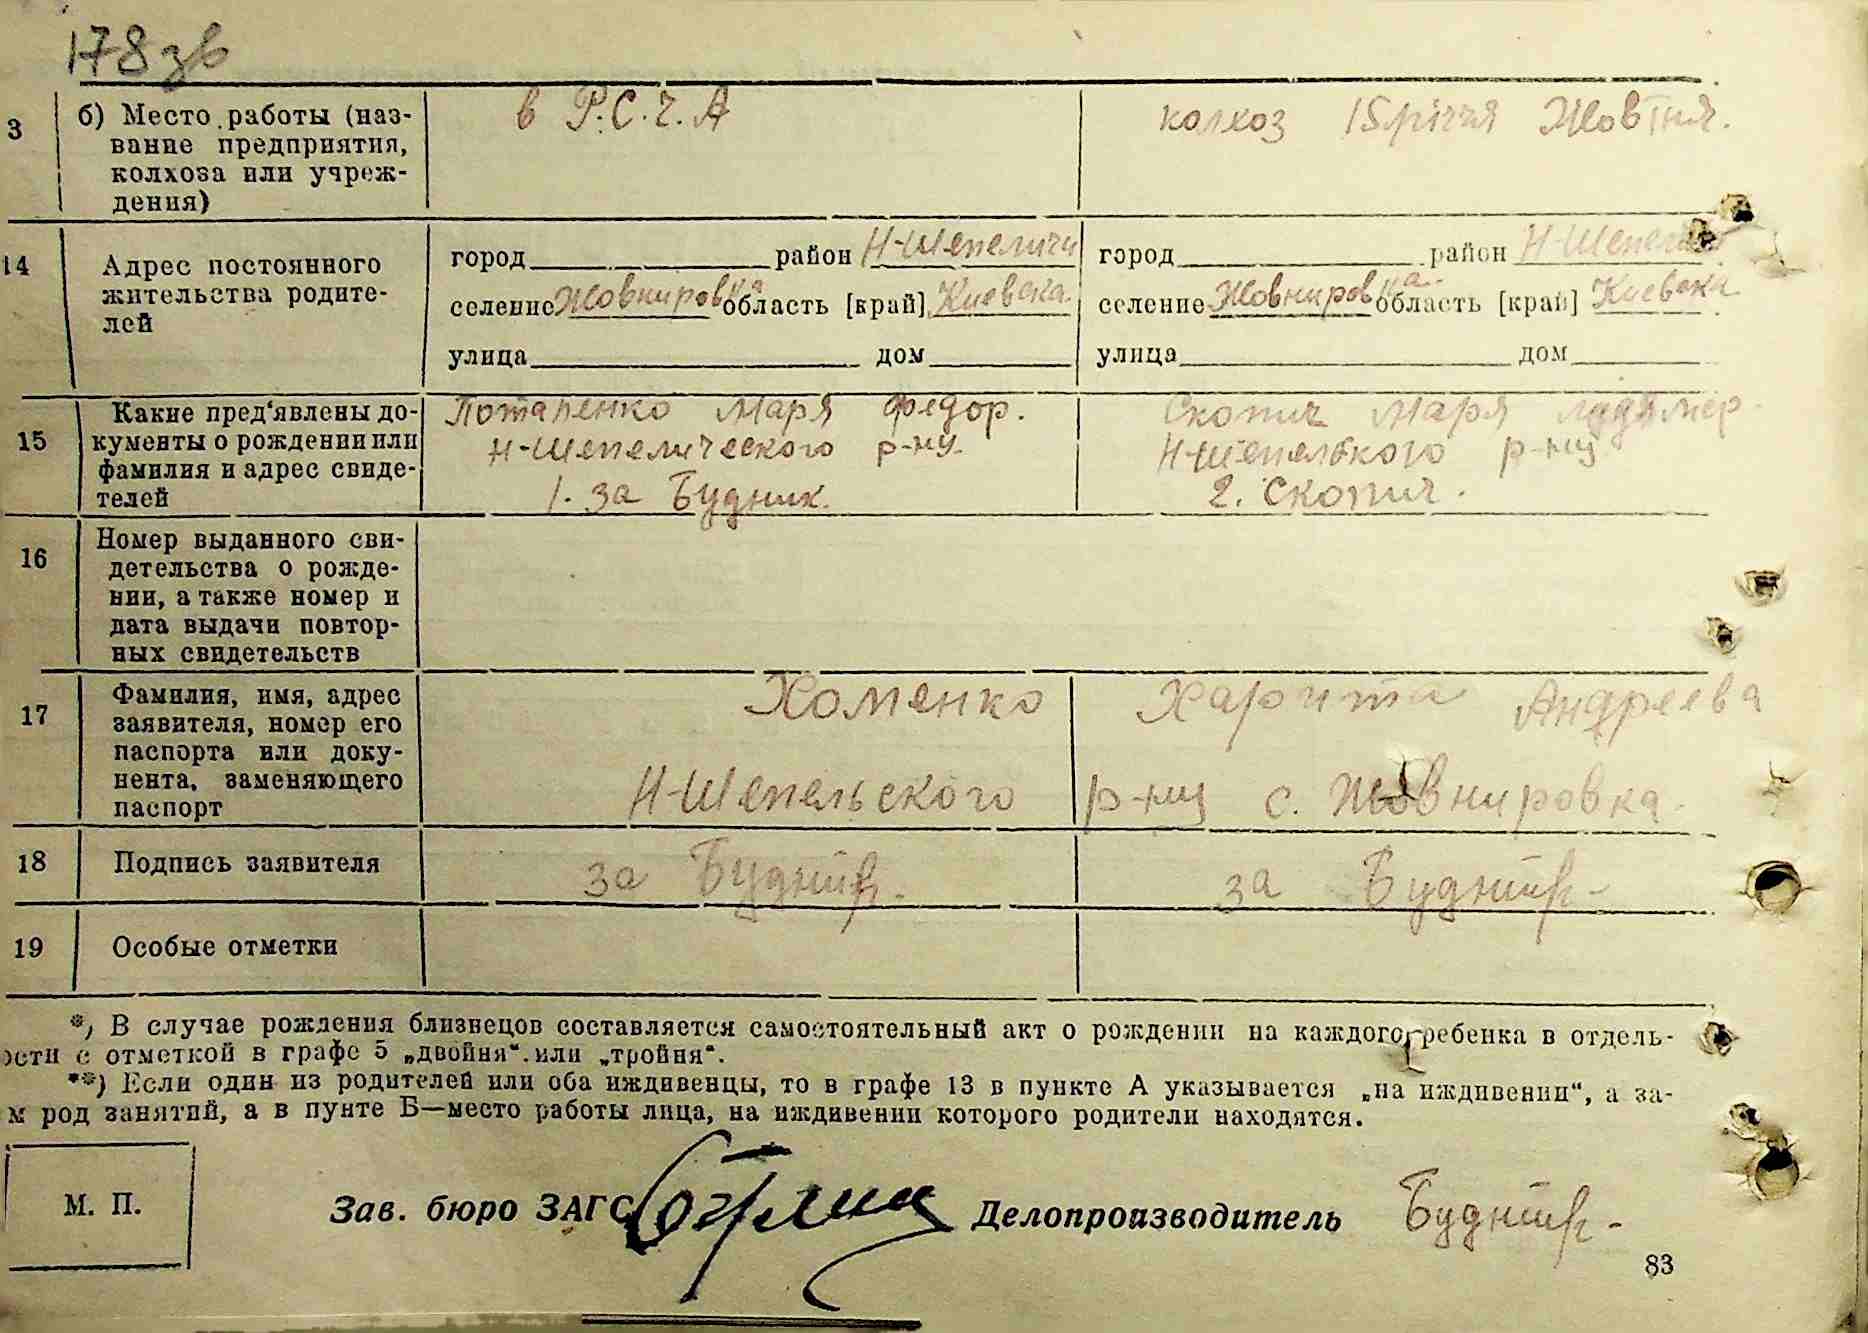 178 зв
3 б) Место работы (наз-
вание предприятия,
колхоза или учреж-
дения)
в Р.С.Ч.А
колхоз 15річчя Жовтня.
14 Адрес постоянного
жительства родите-
лей
город район Н-Шепеличи
селение Жовнировка область [край] Киевска
улица дом
город район Н-Шепели
селение Жовнировка область [край] Киевска
улица дом
15 Какие пред'явлены до-
кументы о рождении или
фамилия и адрес свиде-
телей
Потапенко Маря Федор.
Н-Шепелического р-ну.
1. за Будник.
Скопич Маря
Н-Шепельского р-ну
2. Скопич.
16 Номер выданного сви-
детельства о рожде-
нии, а также номер и
дата выдачи повтор-
ных свидетельств
17 Фамилия, имя, адрес
заявителя, номер его
паспорта или доку-
нента, заменяющего
паспорт
Хоменко Харитина Андреева
Н-Шепельского р-ну с. Жовнировка.
18 Подпись заявителя
за Будник.
за Будник-
19 Особые отметки
*) В случае рождения близнецов составляется самостоятельный акт о рождении на каждого ребенка в отдель-
ости с отметкой в графе 5 „двойня“ или „тройня“.
**) Если один из родителей или оба иждивенцы, то в графе 13 в пункте А указывается „на иждивении“, а за-
м род занятий, а в пунте Б—место работы лица, на иждивении которого родители находятся.
М. П.
Зав. бюро ЗАГС Делопроизводитель Будник-
83